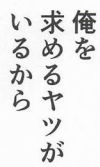 俺を
求めるヤツが
いるから